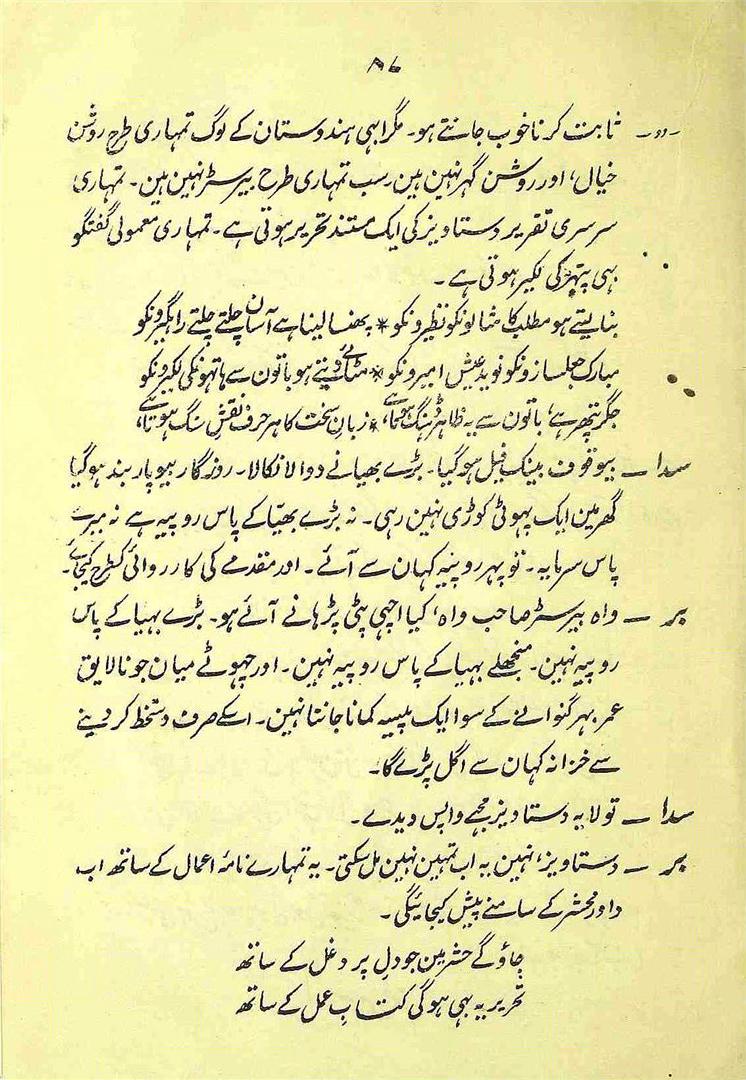 ۸۶
-دو- ثابت کرنا خوب جانتے ہو۔ مگر ابہی ہندوستان کے لوگ تمہاری طرح روشن
خیال، اور روشن گہر نہین ہین۔ سب تمہاری طرح بیرسٹر نہین ہین۔ تمہاری
سرسری تقریر دستاویز کی ایک مستند تحریر ہوتی ہے۔ تمہاری معمولی گفتگو
بہی پتہر کی لکیر ہوتی ہے۔
بنا لیتے ہو مطلب کا مثالونکو نظیرونکو * پھنسا لینا ہے آسان چلتے چلتے راہگیرونکو
مبارک جعلسازونکو نوید عیش امیرونکو * مٹائے دیتے ہو باتون سے ہاتھونکی لکیرونکو
جگر پتھر ہے، باتون سے یہ ظاہر ڈہنگ ہوتا ہے، * زبانِ سخت کا ہر حرف نقشِ سنگ ہوتا ہے،
سدا — بیوقوف بینک فیل ہوگیا۔ بڑے بھیا نے دوالا نکالا۔ روزگار بیوپار بند ہوگیا
گھر مین ایک پہوٹی کوڑی نہین رہی۔ نہ بڑے بھیّا کے پاس روپیہ ہے نہ میرے
پاس سرمایہ۔ تو پہر روپیہ کہان سے آئے۔ اور مقدمے کی کارروائی کسطرح کیجائے۔
بر — واہ بیرسٹر صاحب واہ، کیا اچہی پٹی پڑہانے آئے ہو۔ بڑے بہیا کے پاس
روپیہ نہین۔ منجھلے بہیا کے پاس روپیہ نہین۔ اور چہوٹے میان جو نالایق
عمر بہر گنوانے کے سوا ایک پیسہ کمانا جانتا نہین۔ اسکے صرف دستخط کر دینے
سے خزانہ کہان سے اگل پڑے گا۔
سدا — تو لا یہ دستاویز مجہے واپس دیدے۔
بر — دستاویز، نہین یہ اب تمہین نہین مل سکتی۔ یہ تمہارے نامۂ اعمال کے ساتھ اب
داور محشر کے سامنے پیش کیجائیگی۔
جاؤگے حشر مین جو دلِ پر دغل کے ساتھ
تحریر یہ بہی ہوگی کتابِ عمل کے ساتھ